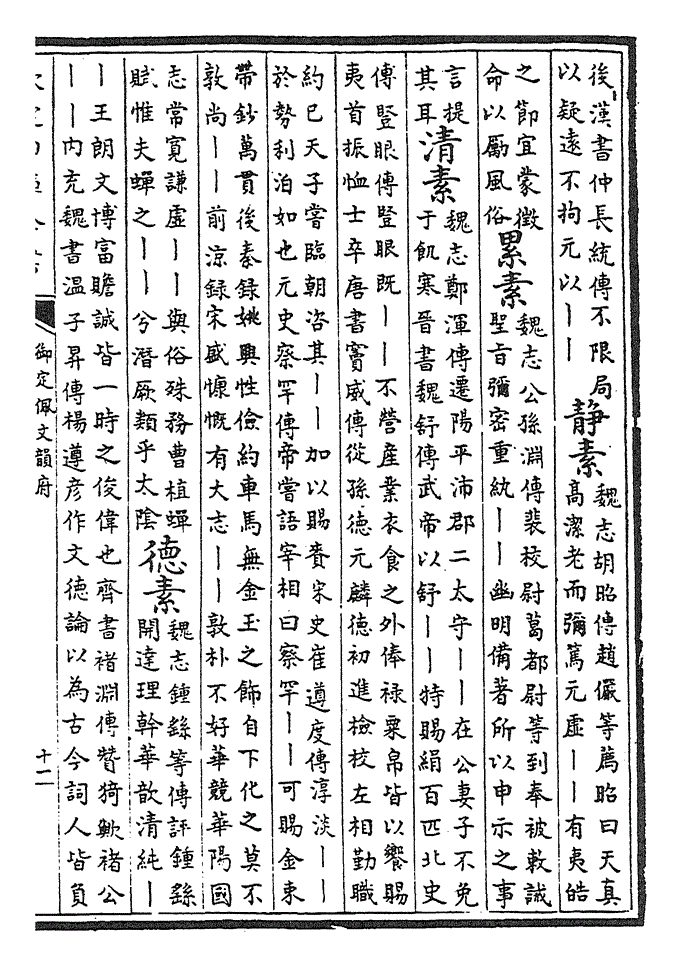 後漢書仲長統傳不限局
以疑遠不拘元以｜｜
靜素
魏志胡昭傳趙儼等薦昭曰天真
高潔老而彌篤元虛｜｜有夷皓
之節宜蒙徵
命以勵風俗
累素
魏志公孫淵傳裴校尉葛都尉等到奉被敕誡
聖旨彌密重紈｜｜幽明備著所以申示之事
言提
其耳
清素
魏志鄭渾傳遷陽平沛郡二太守｜｜在公妻子不免
于飢寒晉書魏舒傳武帝以舒｜｜特賜絹百匹北史
傅豎眼傳豎眼既｜｜不營産業衣食之外俸祿粟帛皆以饗賜
夷首振恤士卒唐書竇威傳從孫德元麟德初進檢校左相勤職
約已天子嘗臨朝咨其｜｜加以賜賚宋史崔遵度傳淳淡｜｜
於勢利泊如也元史察罕傳帝嘗語宰相曰察罕｜｜可賜金束
帶鈔萬貫後秦錄姚興性儉約車馬無金玉之飾自下化之莫不
敦尚｜｜前涼録宋盛慷慨有大志｜｜敦朴不好華競華陽國
志常寛謙虛｜｜與俗殊務曹植蟬
賦惟夫蟬之｜｜兮潛厥類乎太陰
德素
魏志鍾繇等傳評鍾繇
開達理幹華歆清純｜
｜王朗文博富贍誠皆一時之俊偉也齊書褚淵傳贊猗歟褚公
｜｜内充魏書溫子昇傳楊遵彥作文德論以為古今詞人皆負
御定佩文韻府
十二